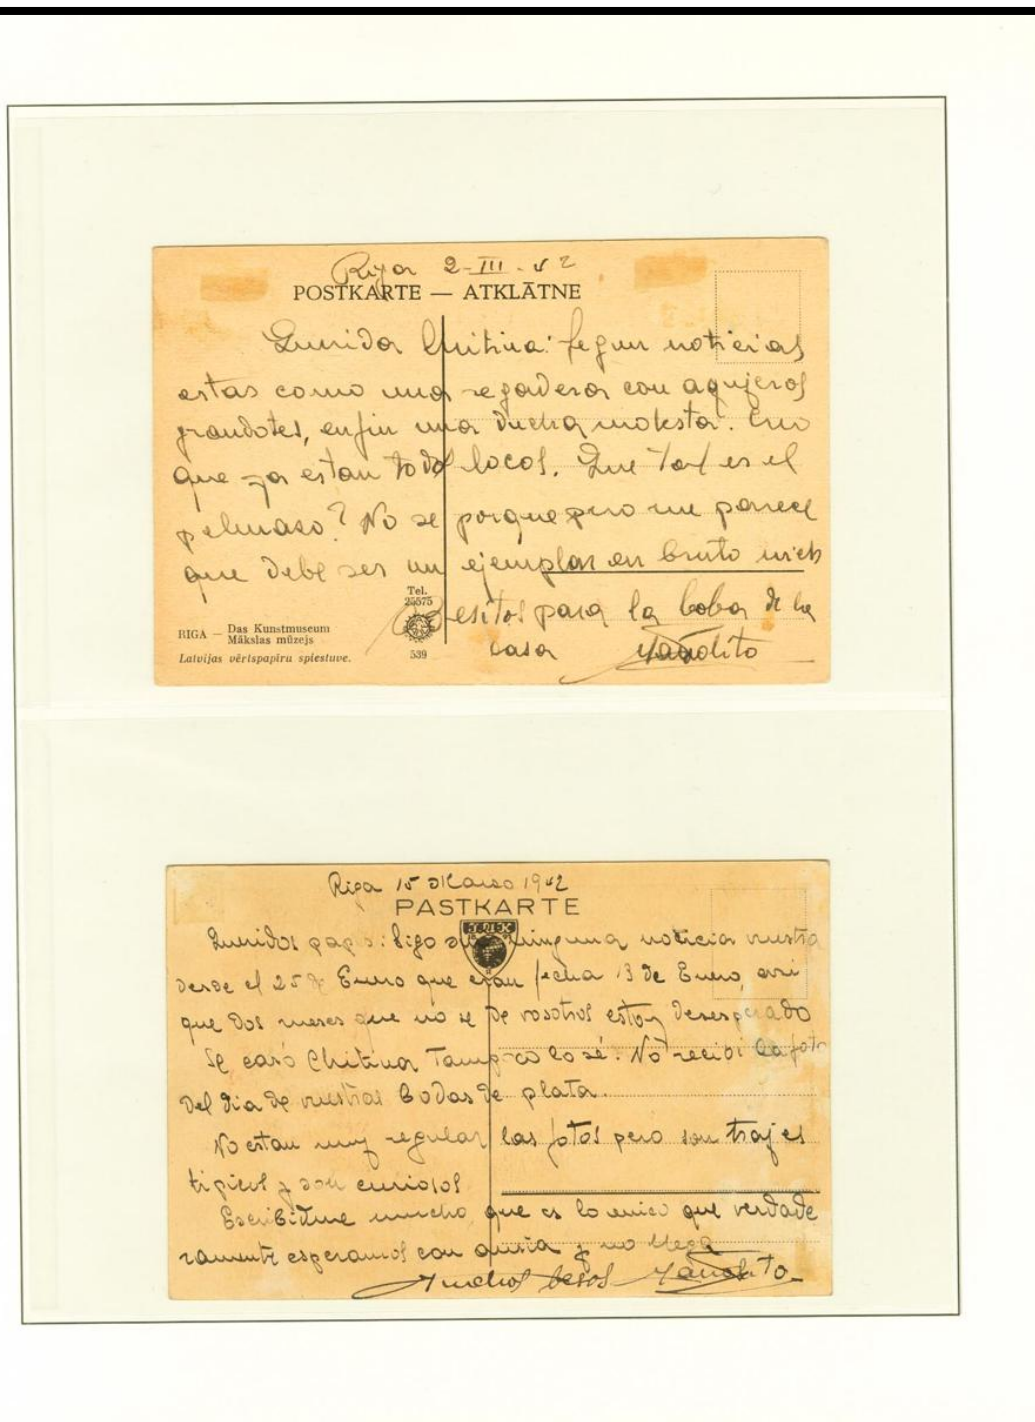 Riga 2-III-42
POSTKARTE — ATKLĀTNE
Querida Chitina: Segun noticias
estas como una regadera con agujeros
grandotes, enfin una ducha molesta. Creo
que ya estan todos locos. Que tal es el
pelmaso? No se porque pero me parece
que debe ser un ejemplar en bruto
Besitos para la boba de la
casa Manolito
Tel.
25575
539
RIGA — Das Kunstmuseum
Mākslas mūzejs
Latvijas vērtspapīru spiestuve.
Riga 15 Marzo 1942
PASTKARTE
Queridos papas: Sigo sin ninguna noticia vuestra
desde el 25 de Enero que eran fecha 13 de Enero, asi
que dos meses que no se de vosotros estoy desesperado
Se casó Chitina Tampoco lo sé. No recibi la foto
del dia de vuestras Bodas de plata.
No estan muy regular las fotos pero son trajes
tipicos y son curiosos
Escribidme mucho, que es lo unico que verdade
ramente esperamos con ansia y no llega
Muchos besos Manolito